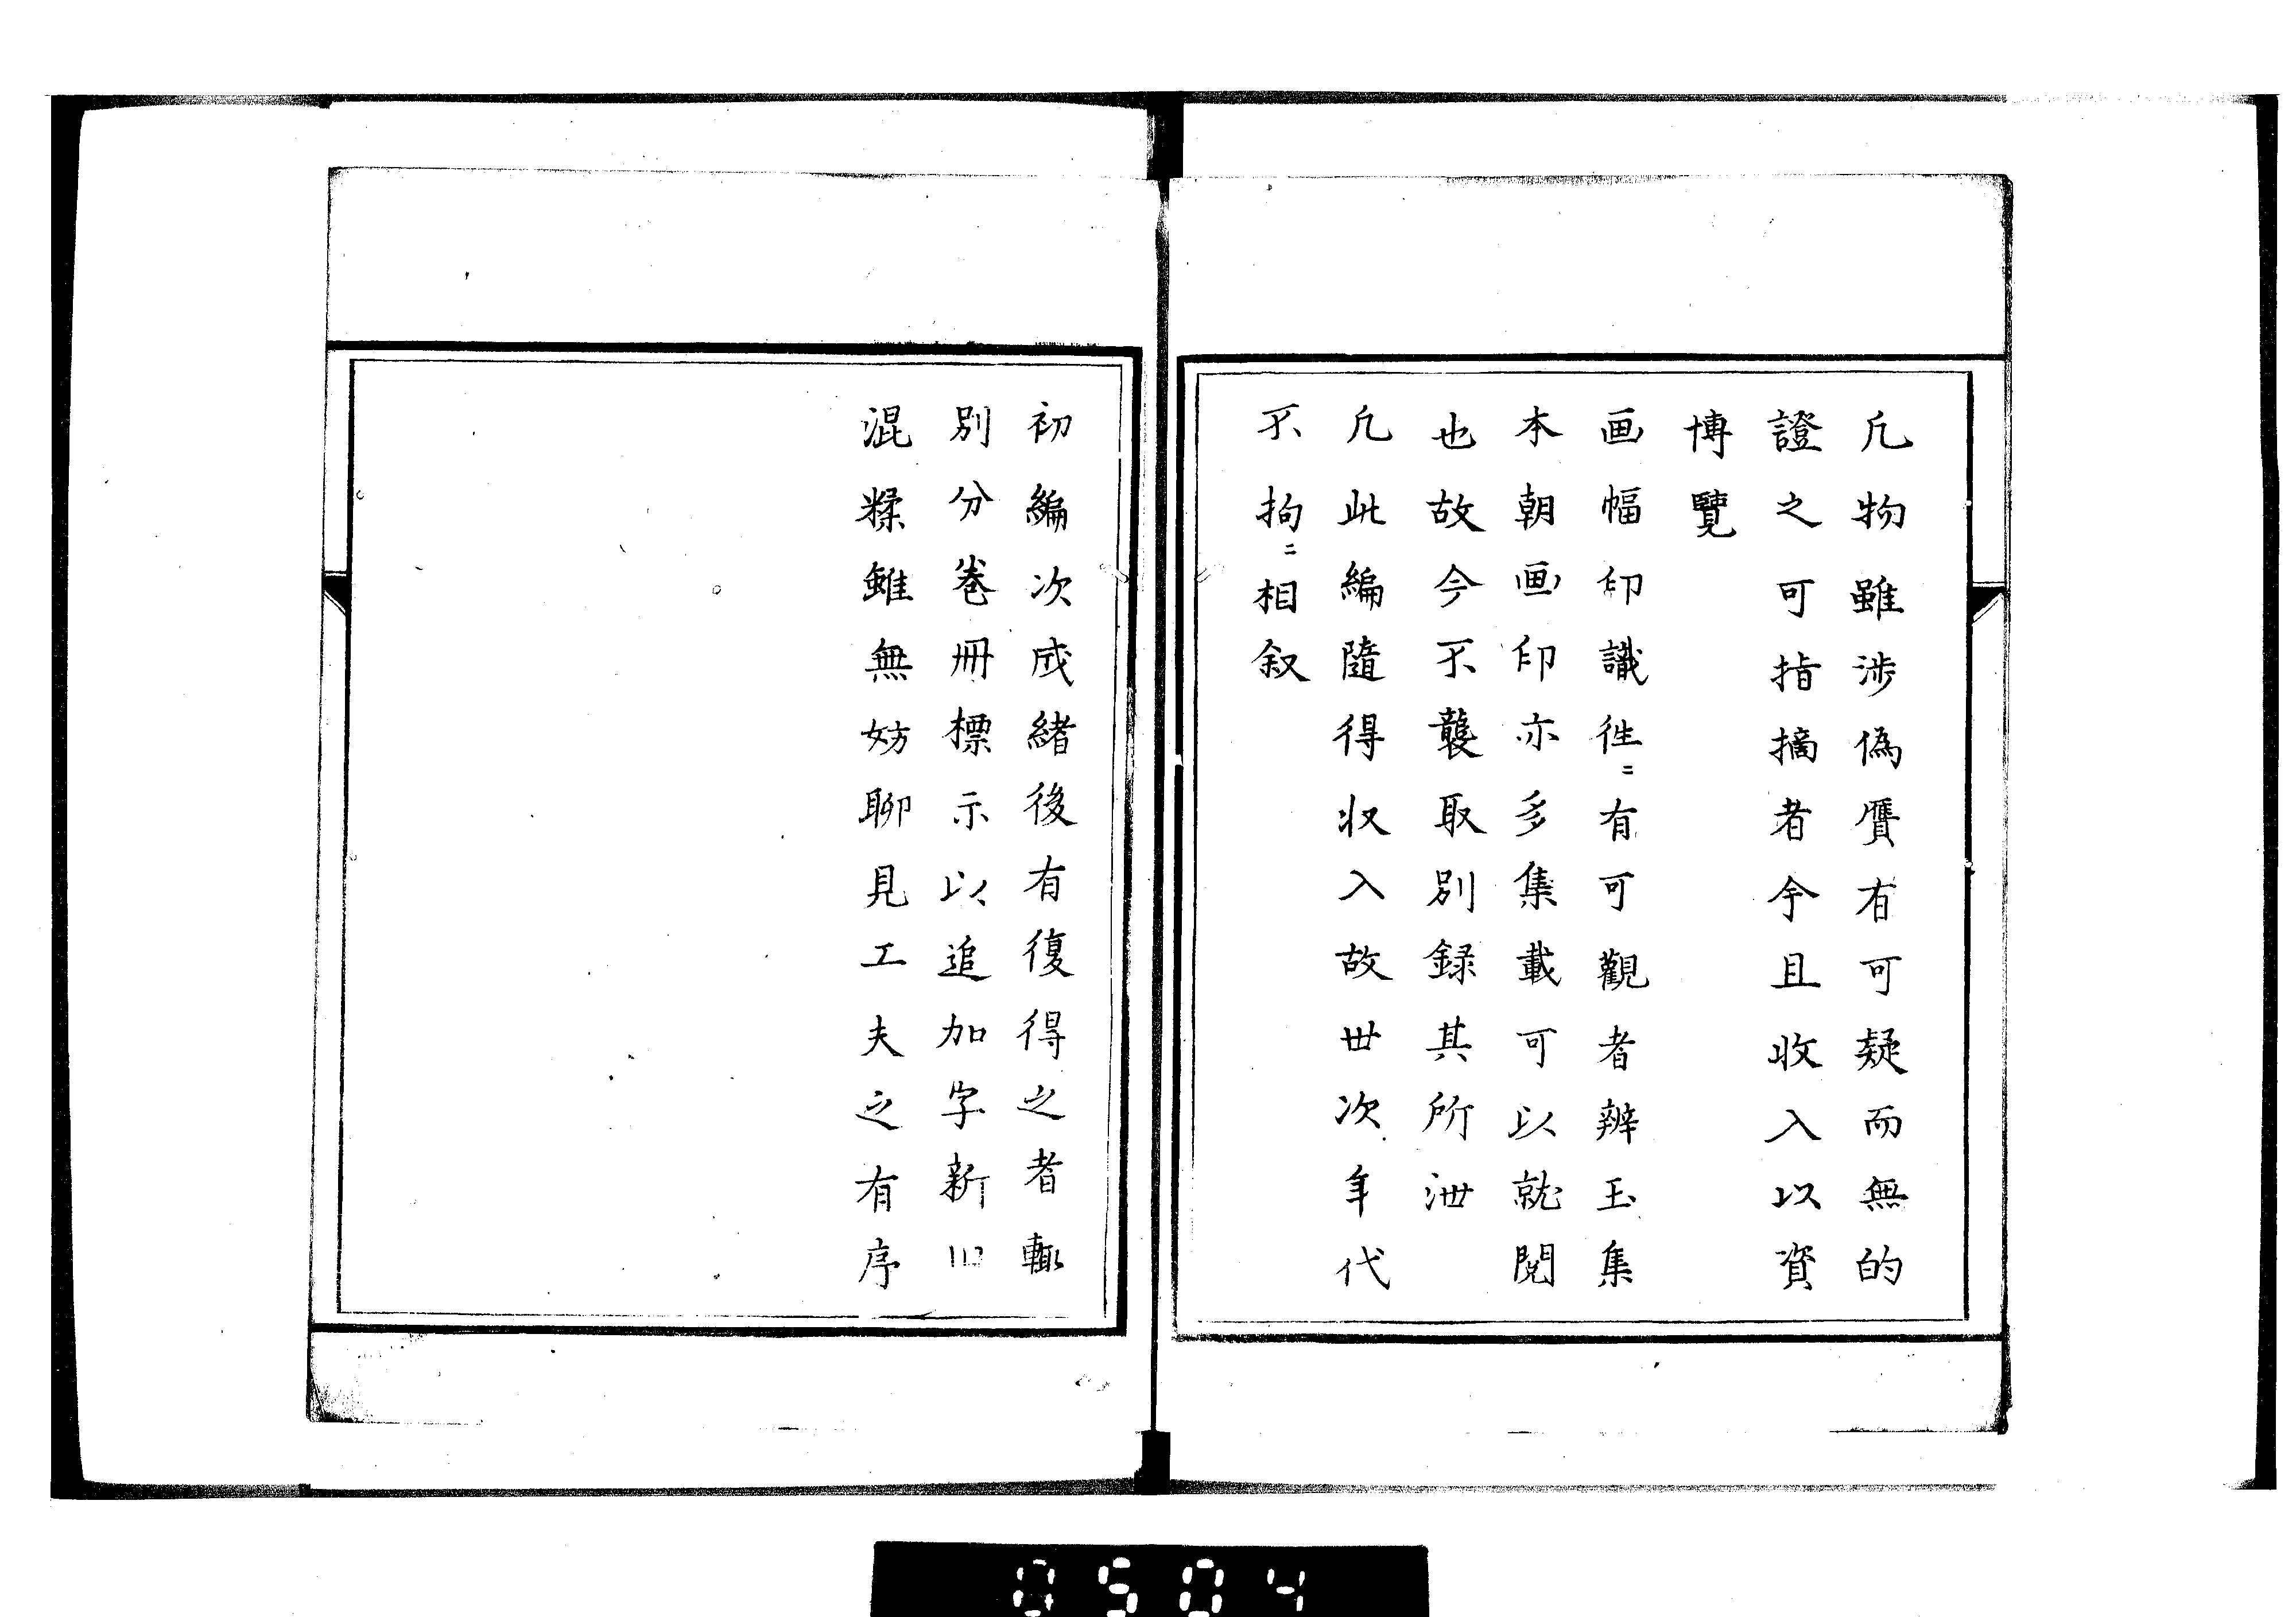 凢物雖渉偽贋有可疑而無的
證之可指摘者今且收入以資
博覽
画幅印識徃〻有可觀者辨玉集
本朝画印亦多集載可以就閲
也故今不襲取別録其所泄
凢此編隨得収入故世次年代
不拘〻相叙
初編次成緒後有復得之者輙
別分巻冊標示以追加字新旧
混糅雖無妨聊見工夫之有序
0504